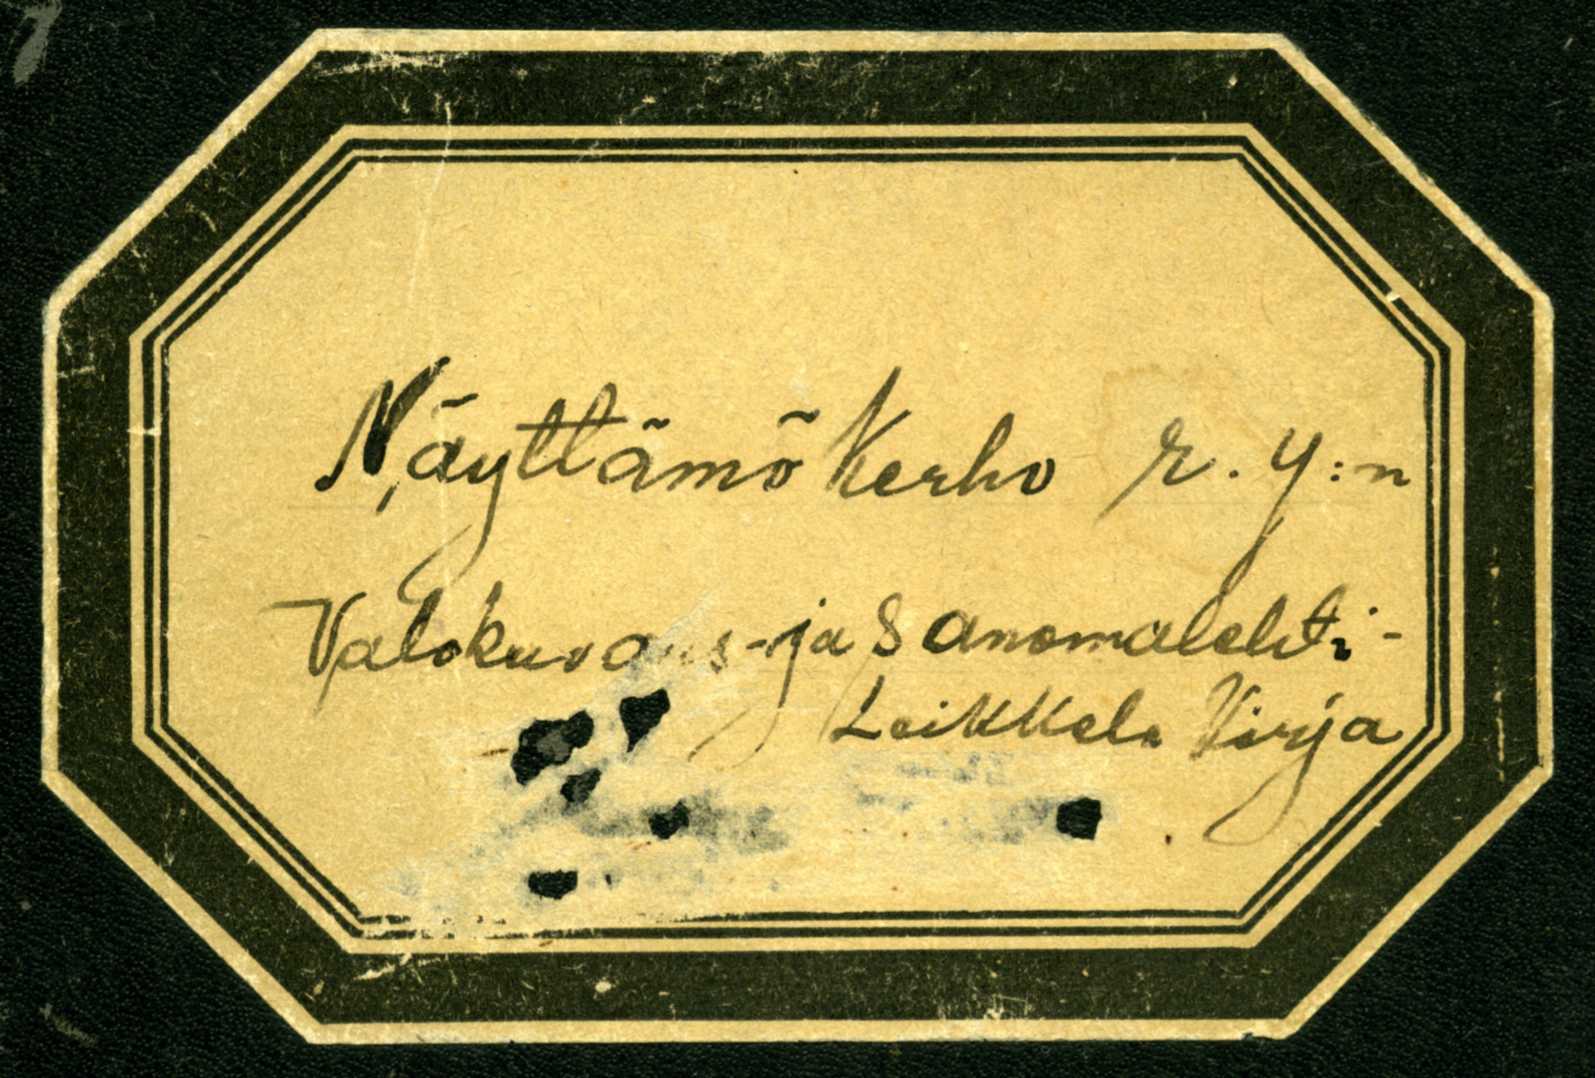 Näyttämö Kerho r.y:n
Valokuvaus- ja Sanomalehti-
Leikkele Kirja